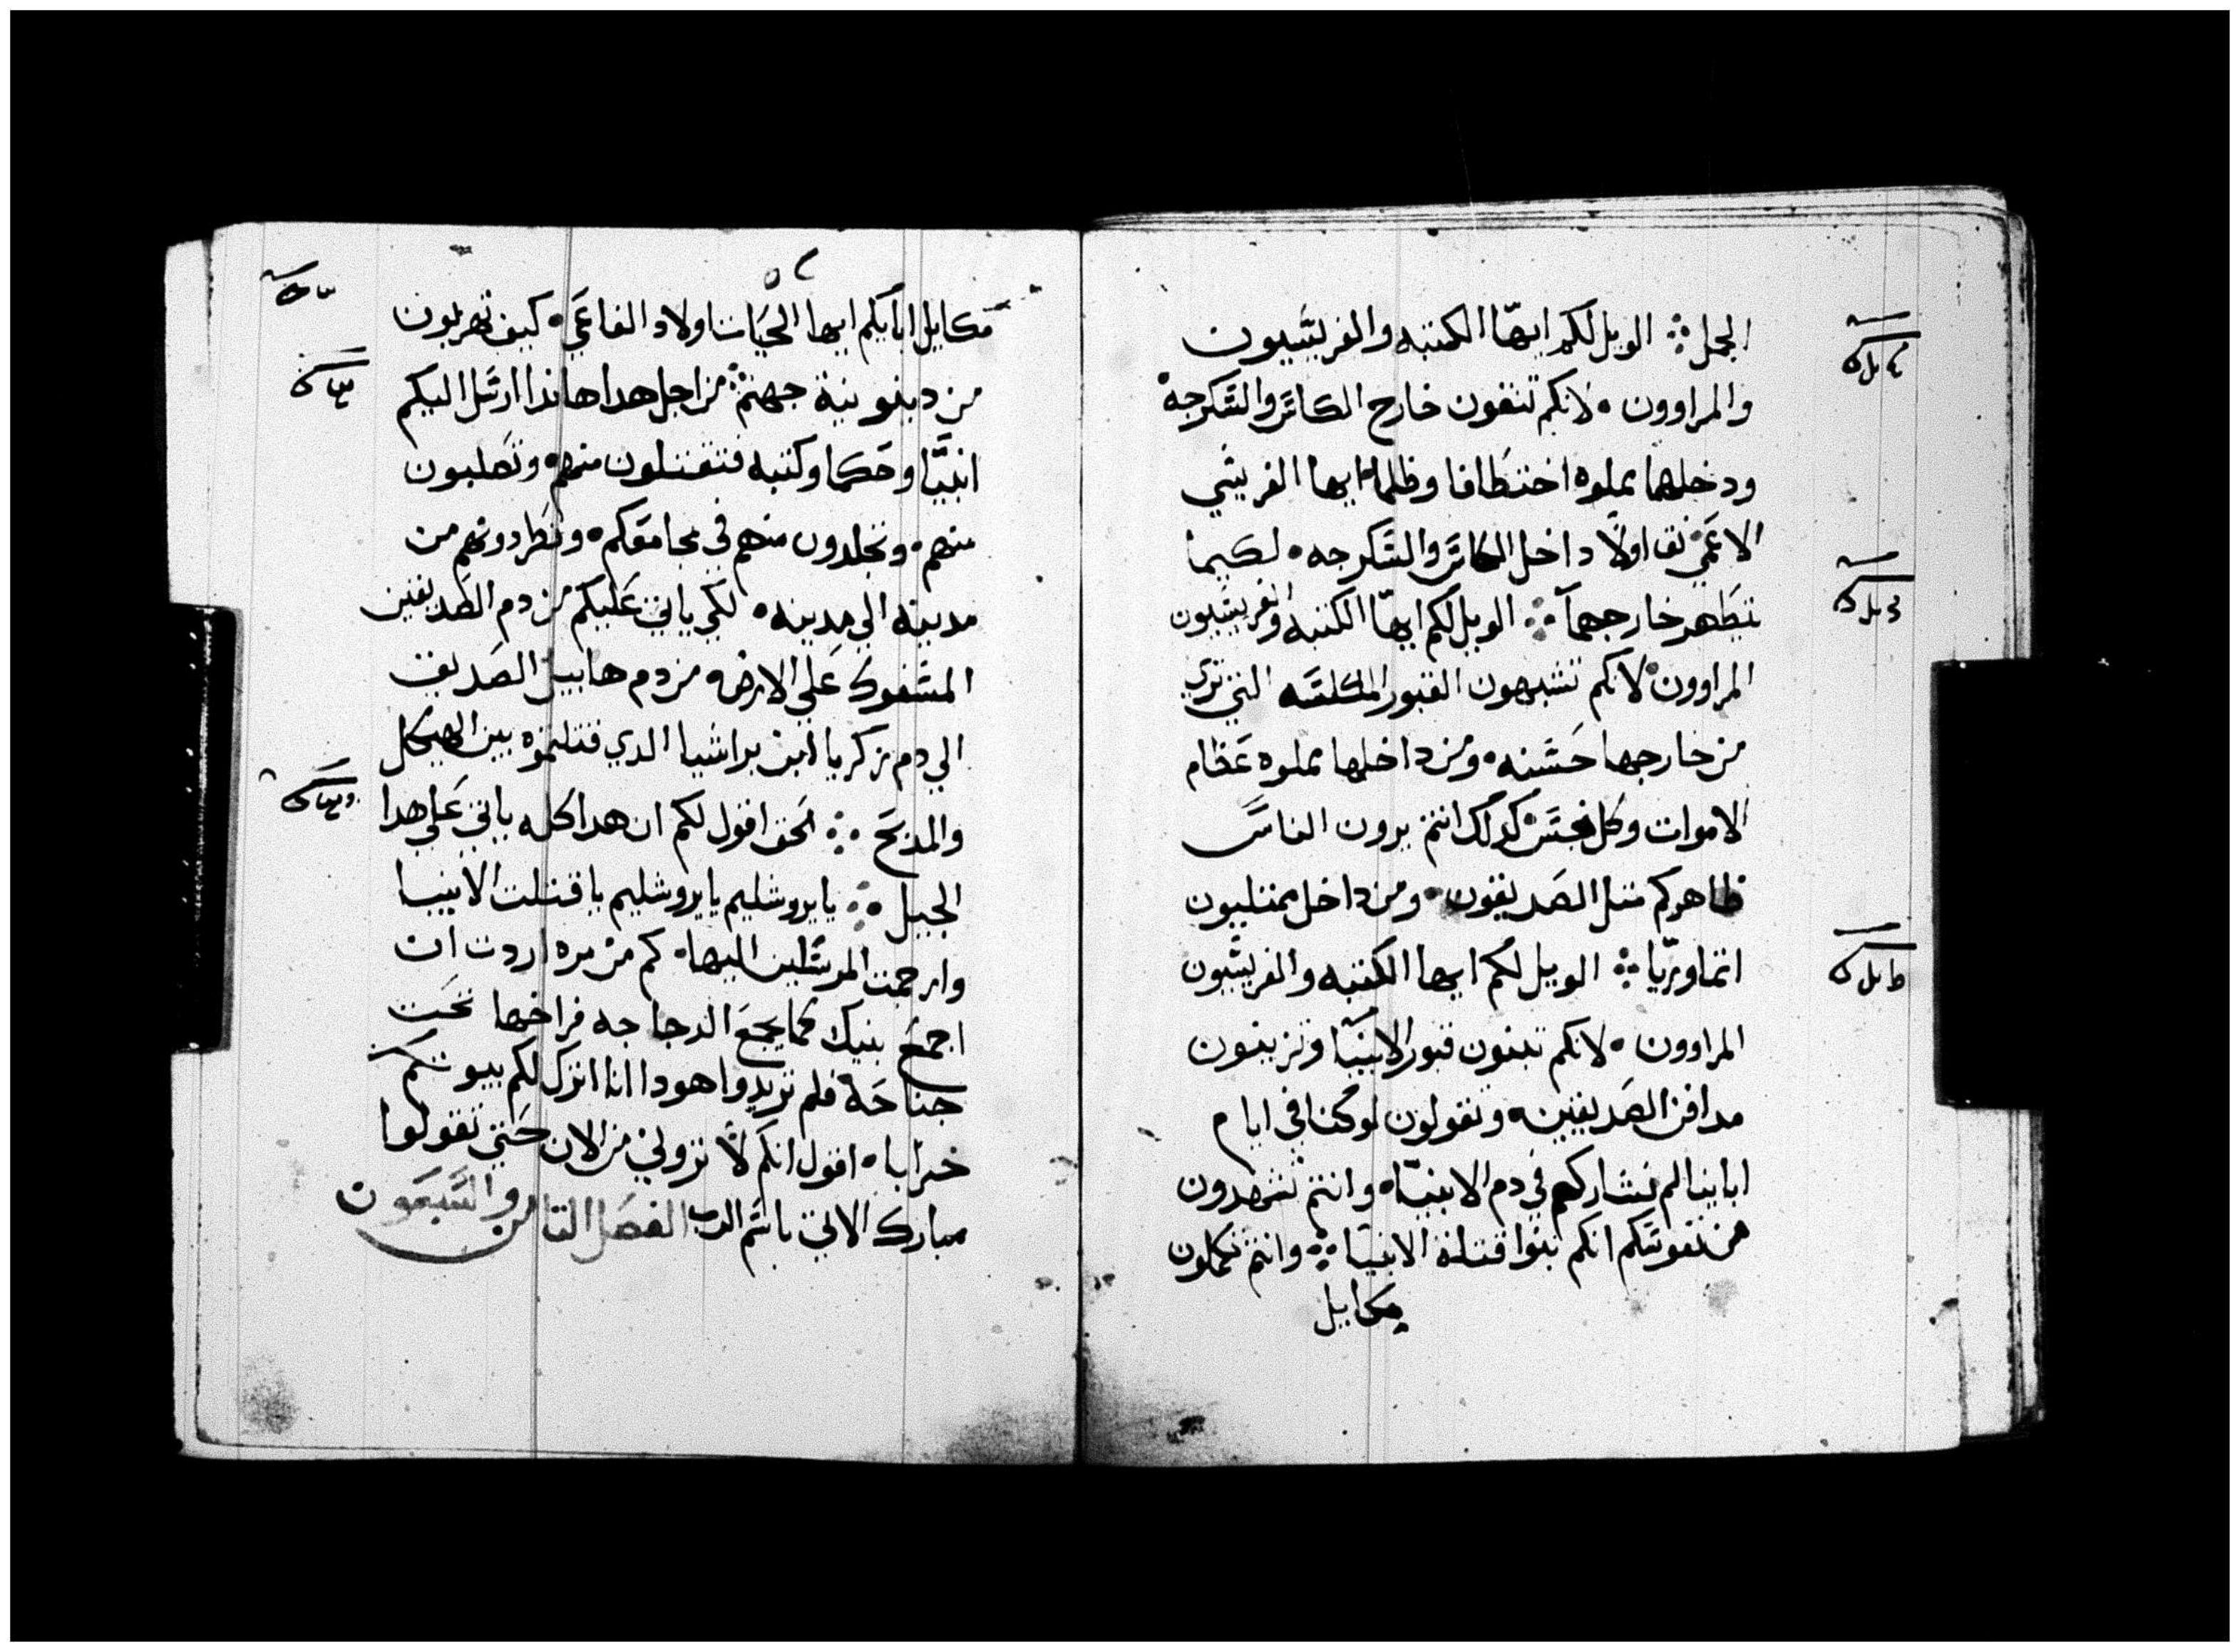 الجمل الويل لكم ايها الكتبه والفريسيون
والمراوون لانكم تنقون خارج الكاس والسكرجه
وداخلهما مملوه اختطافا وظلما ايها الفريسي
الاعمي نق اولا داخل الكاس والسكرجه لكيما
يتطهر خارجهما الويل لكم ايها الكتبه والفريسيون
المراوون لانكم تشبهون القبور المكلسه التي تري
من خارجها حسنه ومن داخلها مملوه عظام
الاموات وكل نجس كدلك انتم يرون الناس
ظاهركم متل الصديقون ومن داخل ممتليون
اتما وريا الويل لكم ايها الكتبه والفريسيون
المراوون لانكم تبنون قبور الانبيا وتزينون
مدافن الصديقين وتقولون لو كنا في ايام
اباينا لم نشاركهم في دم الانبيا وانتم تشهدون
من نفوسكم انكم بنوا قتلة الانبيا وانتم تكملون
مكاييل
مكاييل ابايكم ايها الحيات اولاد الفاعي كيف تهربون
من دينونية جهنم من اجل هدا هاندا ارسل اليكم
انبيا وحكما وكتبه فتقتلون منهم وتصلبون
منهم وتجلدون منهم في مجامعكم وتطردونهم من
مدينه الي مدينه لكي ياتي عليكم من دم الصديقين
المسفوك علي الارض من دم هابيل الصديق
الي دم زكريا ابن براشيا الدي قتلتموه بين الهيكل
والمدبح الحق اقول لكم ان هدا كله ياتي علي هدا
الجيل يا يروشليم يا يروشليم يا قتلت الانبيا
وارجمت المرسلين اليها كم من مره اردت ان
اجمع بنيك كما يجمع الدجاجه فراخها تحت
جناحه فلم تريدوا هودا انا اترك لكم بيوتكم
خرابا اقول انكم لا تروني من الان حتي تقولوا
مبارك الاتي باسم الرب الفصل التامن والسبعون